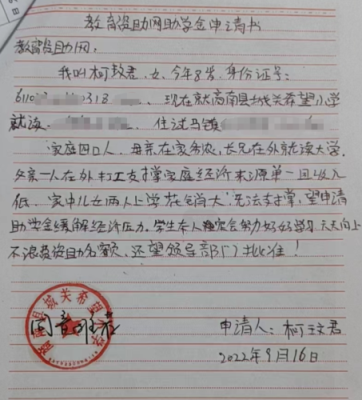 教育资助网助学金申请书
教育资助网：
我叫柯 君，女，今年8岁，身份证号：
6110 0318 ，现在就商南县城关希望小学
就读， 住过
家庭四口人，母亲在家务农，长兄在外就读大学，
父亲一人在外打工支撑家庭经济来源单一，收入
低，家中儿女两人上学花销大，无法支撑，望申请
助学金缓解经济压力。学生本人 会努力好好学习，天天向上
不浪费资助名额，还望领导部门批准！
同意
城关希望
申请人：柯 君
2022年9月16日